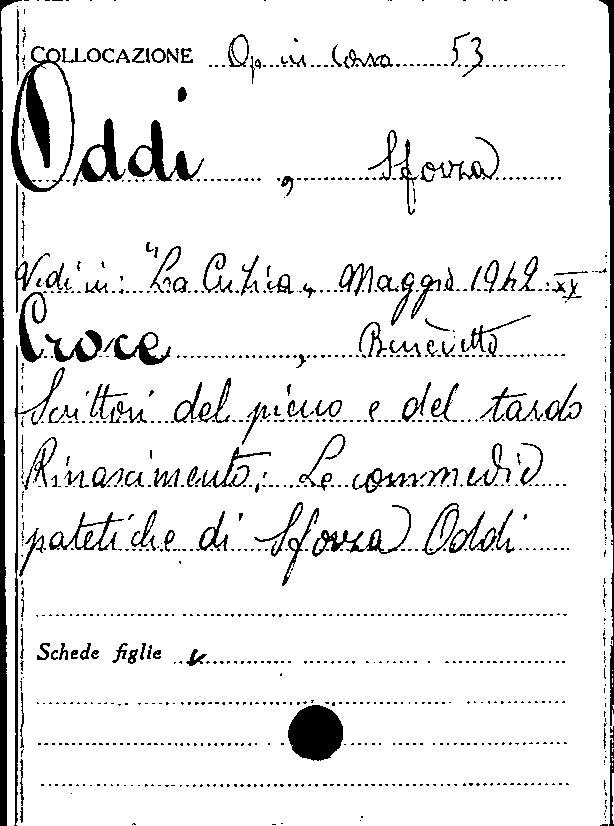 COLLOCAZIONE Op in corso 53
Oddi, Sforza
Vedi in: "La Critica„ Maggio 1942 XX
Croce, Benedetto
Scrittori del pieno e del tardo
Rinascimento: Le commedie
patetiche di Sforza Oddi
Schede figlie v